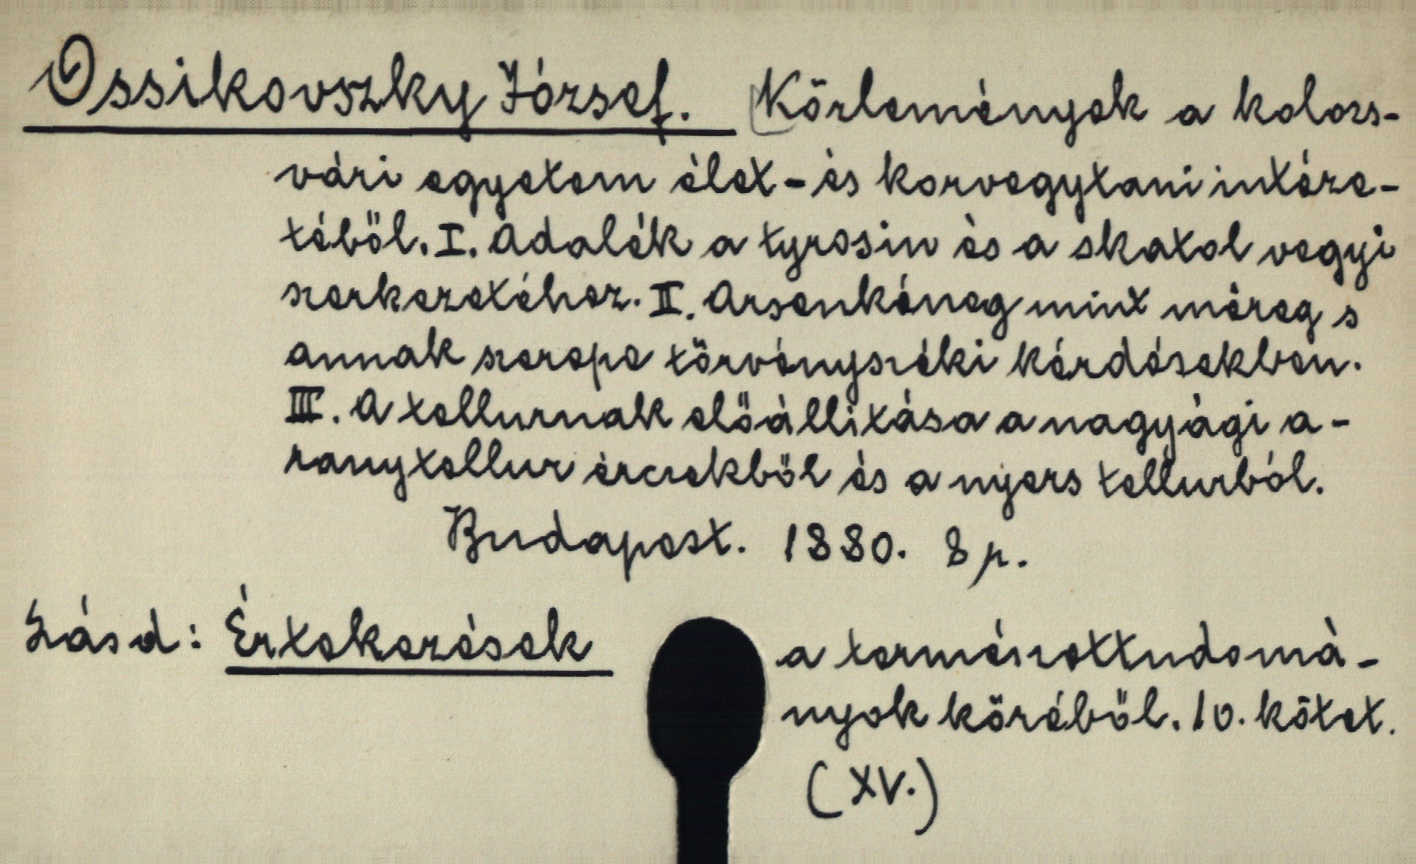 Ossikovszky József. Közlemények a kolozs-
vári egyetem élet- és korvegytani intéze-
téből. I. Adalék a tyrosin és a skatol vegyi
szerkezetéhez. II. Arsenkéneg mint méreg s
annak szerepe törvényszéki kérdésekben.
III. A tellurnak előállitása a nagyági a-
ranytellur ércekből és a nyers tellurból.
Budapest. 1880. 8 p.
Lásd: Értekezések a természettudomá-
nyok köréből. 10. kötet.
(XV.)